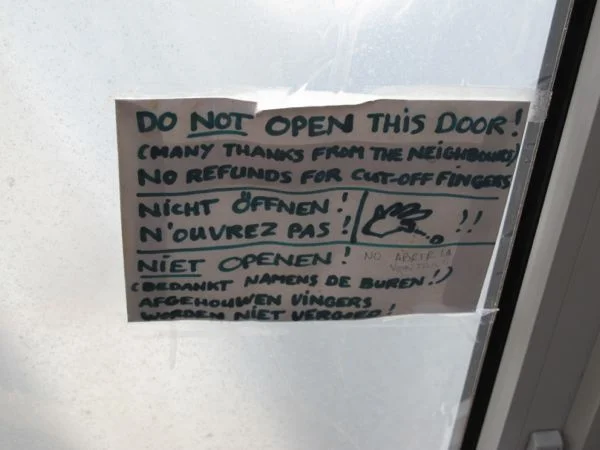 DO NOT OPEN THIS DOOR!
(MANY THANKS FROM THE NEIGHBOURS)
NO REFUNDS FOR CUT-OFF FINGERS
NICHT ÖFFNEN!
N'OUVREZ PAS!
!!
NIET OPENEN!
NO ABRIR LA
(BEDANKT NAMENS DE BUREN!)
AFGEHOUWEN VINGERS
WORDEN NIET VERGOED!